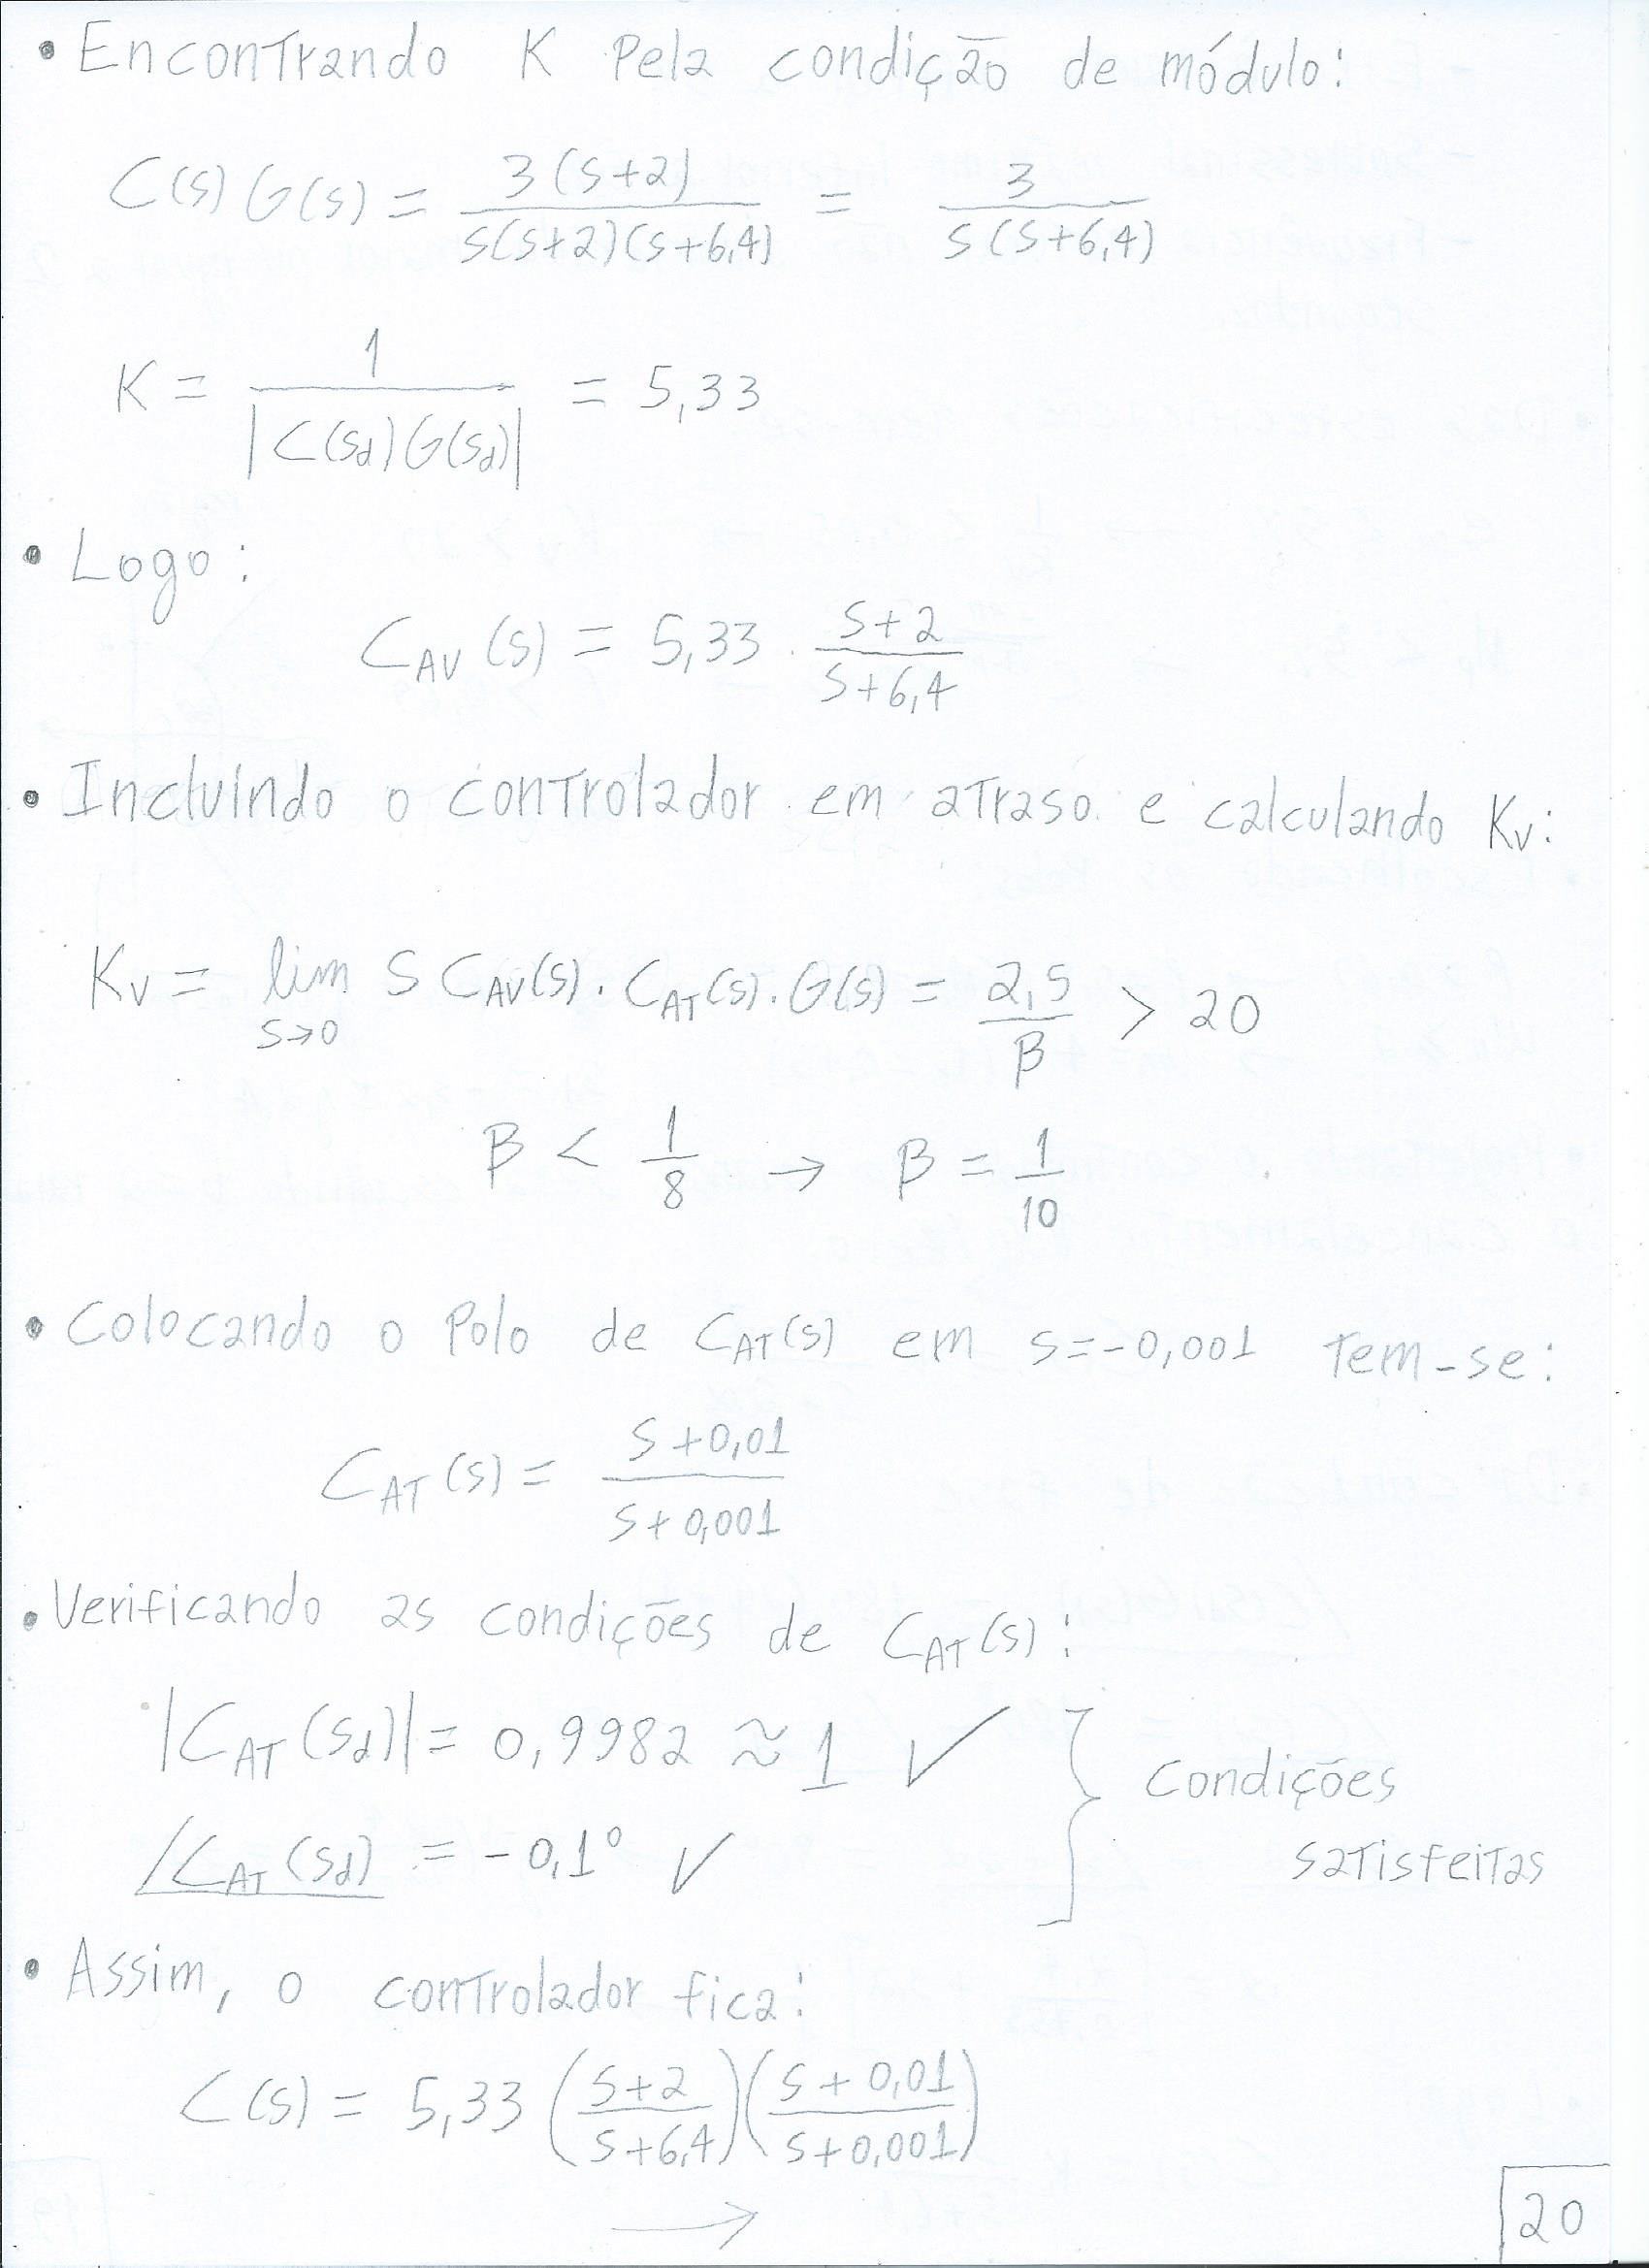 • Encontrando K pela condição de módulo:
C(s)G(s) = 3(s+2) / s(s+2)(s+6,4) = 3 / s(s+6,4)
K = 1 / |C(sd)G(sd)| = 5,33
• Logo:
CAV(s) = 5,33 . s+2 / s+6,4
• Incluindo o controlador em atraso e calculando Kv:
Kv = lim s→0 s CAV(s) . CAT(s) . G(s) = 2,5 / β > 20
β < 1/8 → β = 1/10
• Colocando o polo de CAT(s) em s=-0,001 tem-se:
CAT(s) = s+0,01 / s+0,001
• Verificando as condições de CAT(s):
|CAT(sd)| = 0,9982 ≈ 1 ✓ } Condições
∠CAT(sd) = -0,1° ✓ satisfeitas
• Assim, o controlador fica:
C(s) = 5,33 (s+2 / s+6,4)(s+0,01 / s+0,001)
→
20